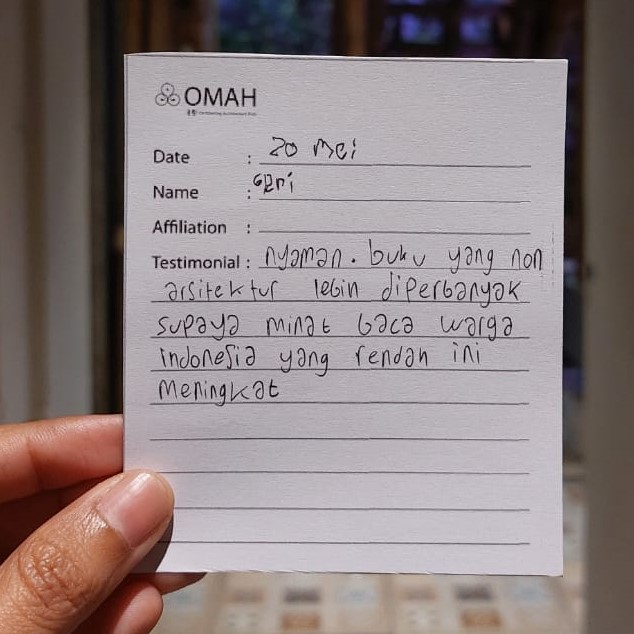 OMAH
Date : 20 Mei
Name : Geri
Affiliation :
Testimonial : nyaman. buku yang non
arsitektur lebih diperbanyak
supaya minat baca warga
indonesia yang rendah ini
meningkat